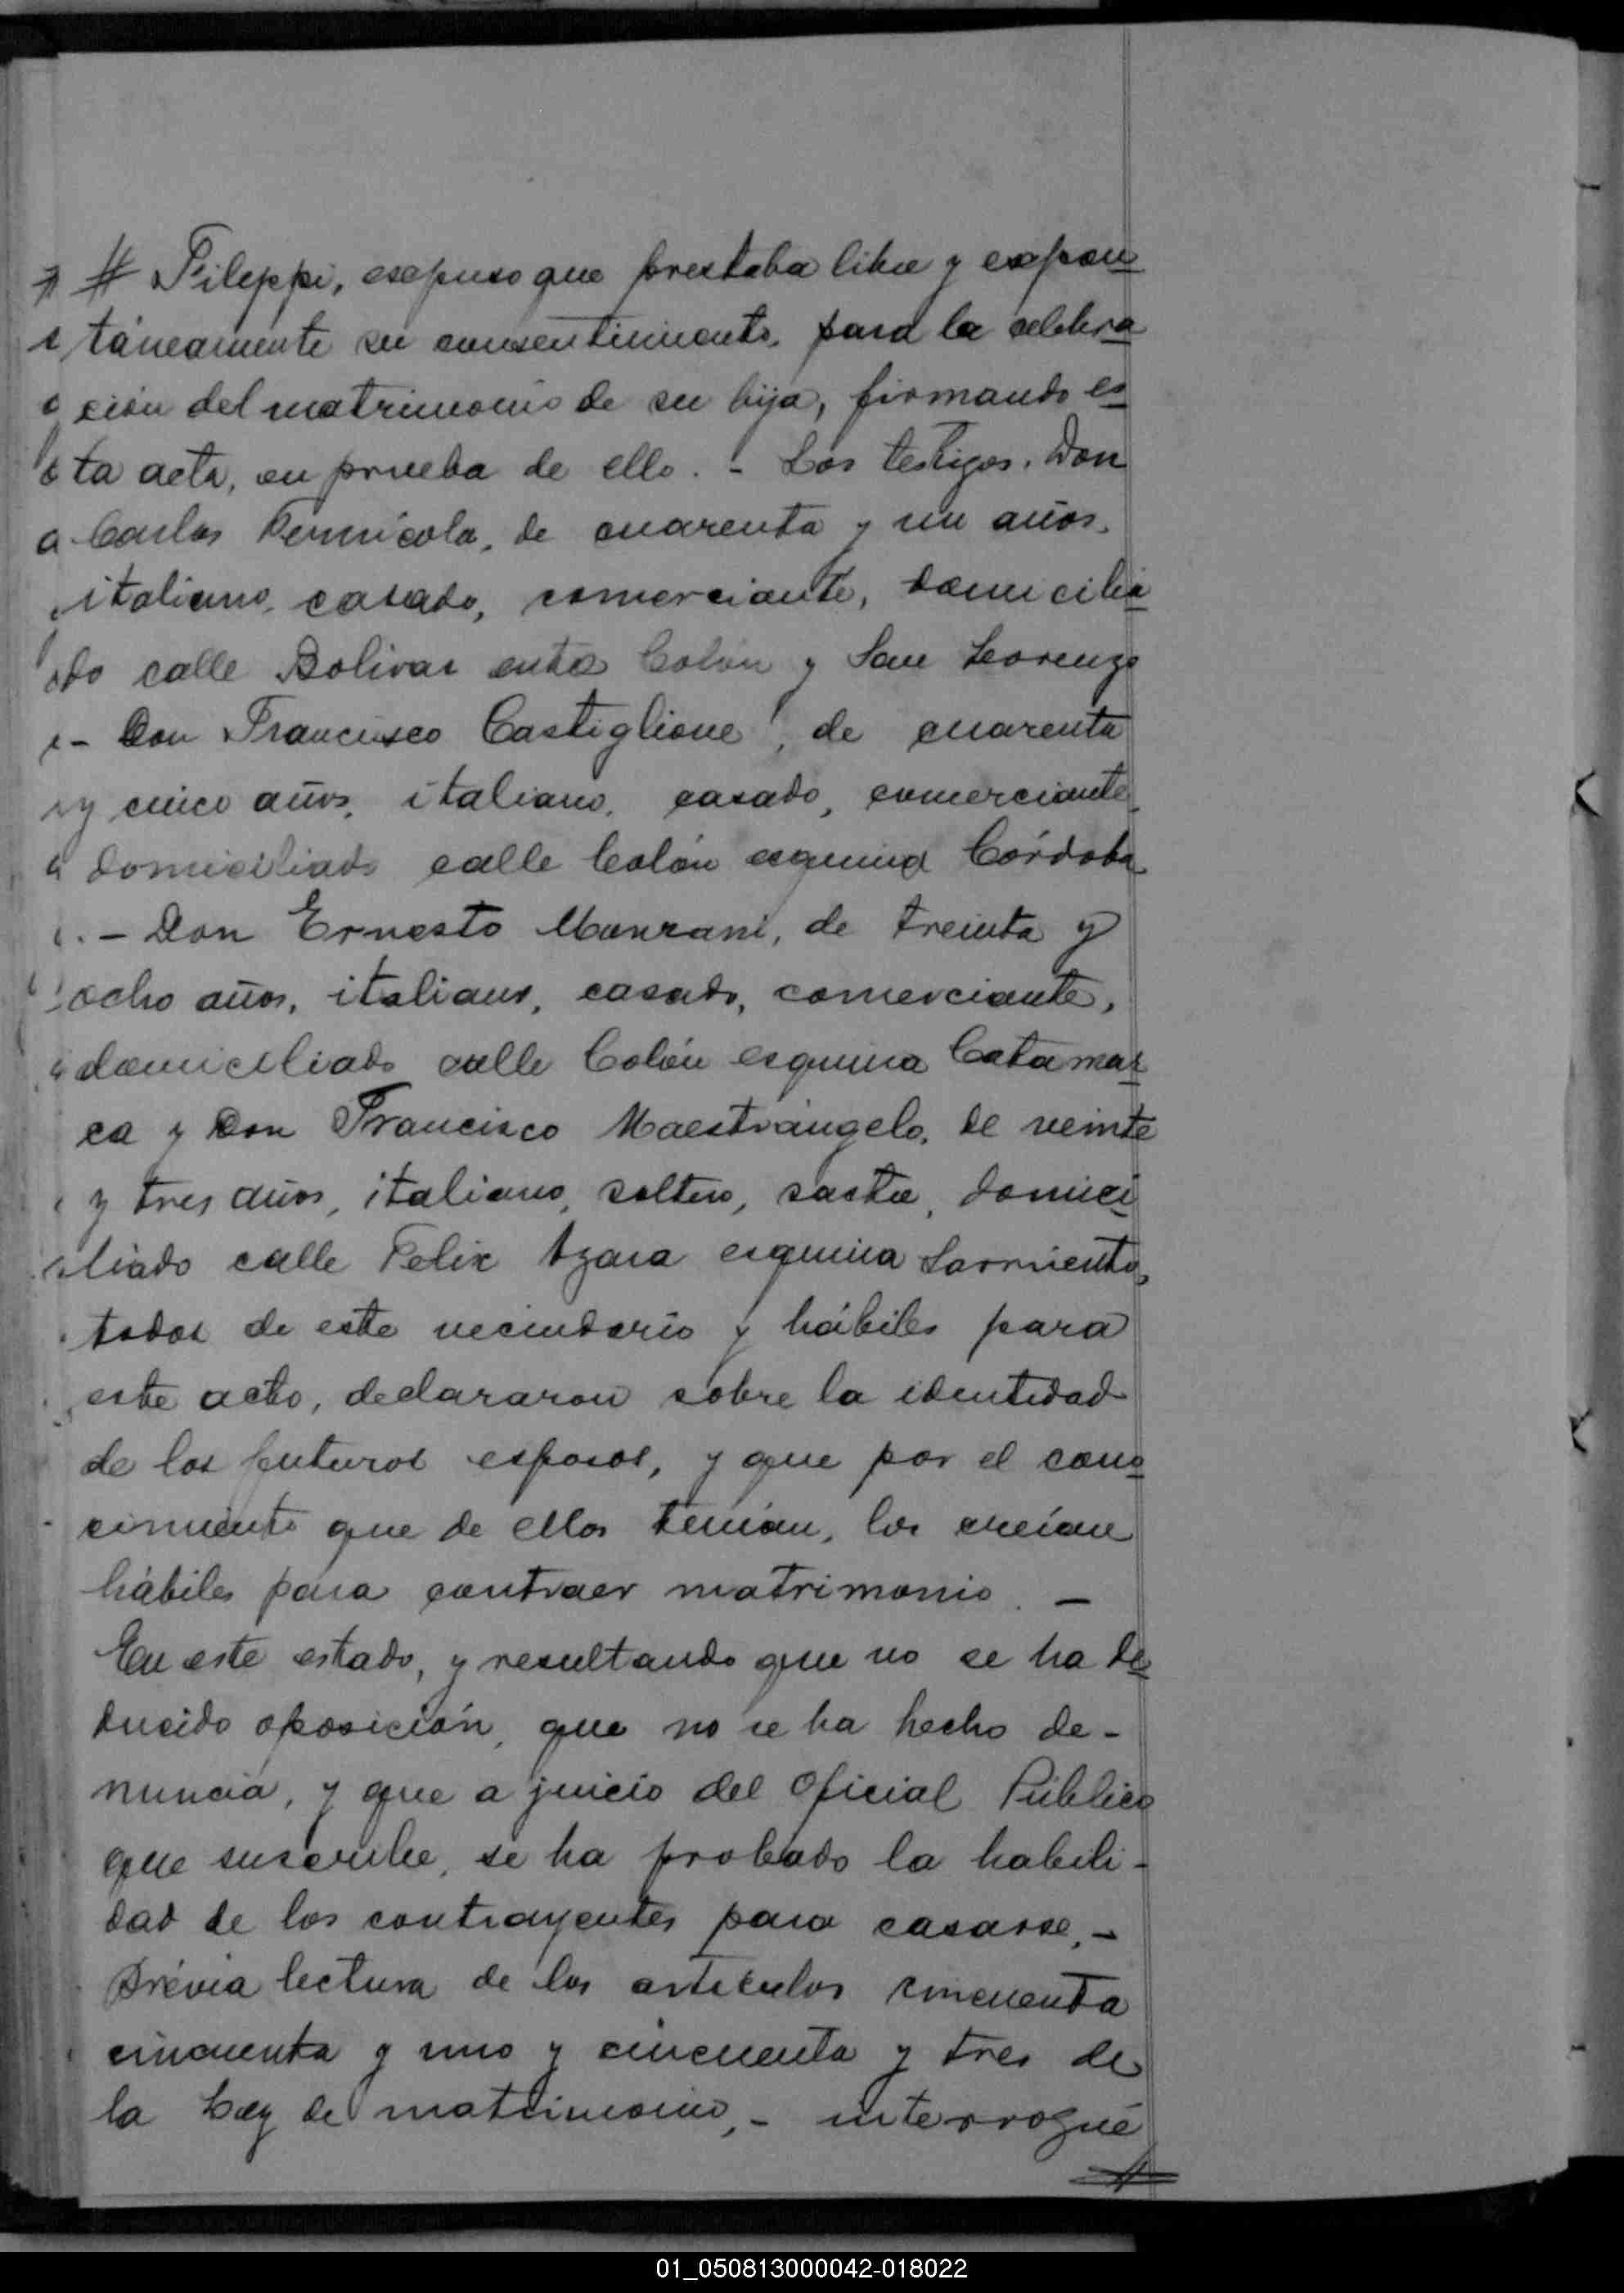 # Fileppi, expuso que prestaba libre y expon
táneamente su consentimiento, para la celebra
ción del matrimonio de su hija, firmando es
ta acta, en prueba de ello. - Los testigos, Don
Carlos Pernícola, de cuarenta y un años,
italiano, casado, comerciante, domicilia
do calle Bolivar entre Colón y San Lorenzo
- Don Francisco Castiglione, de cuarenta
y cinco años, italiano, casado, comerciante,
domiciliado calle Colón esquina Córdoba
. - Don Ernesto Manrani, de treinta y
ocho años, italiano, casado, comerciante,
domiciliado calle Colón esquina Catamar
ca y Don Francisco Maestrángelo, de veinte
y tres años, italiano, soltero, sastre, domici
liado calle Felix Azara esquina Sarmiento,
todos de este vecindario y hábiles para
este acto, declararon sobre la identidad
de los futuros esposos, y que por el cono
cimiento que de ellos tenían, los creían
hábiles para contraer matrimonio. -
En este estado, y resultando que no se ha de
ducido oposición, que no se ha hecho de-
nuncia, y que a juicio del Oficial Público
que suscribe, se ha probado la habili-
dad de los contrayentes para casarse, -
Prévia lectura de los artículos cincuenta
cincuenta y uno y cincuenta y tres de
la Ley de matrimonio, - interrogué
#
01_050813000042-018022